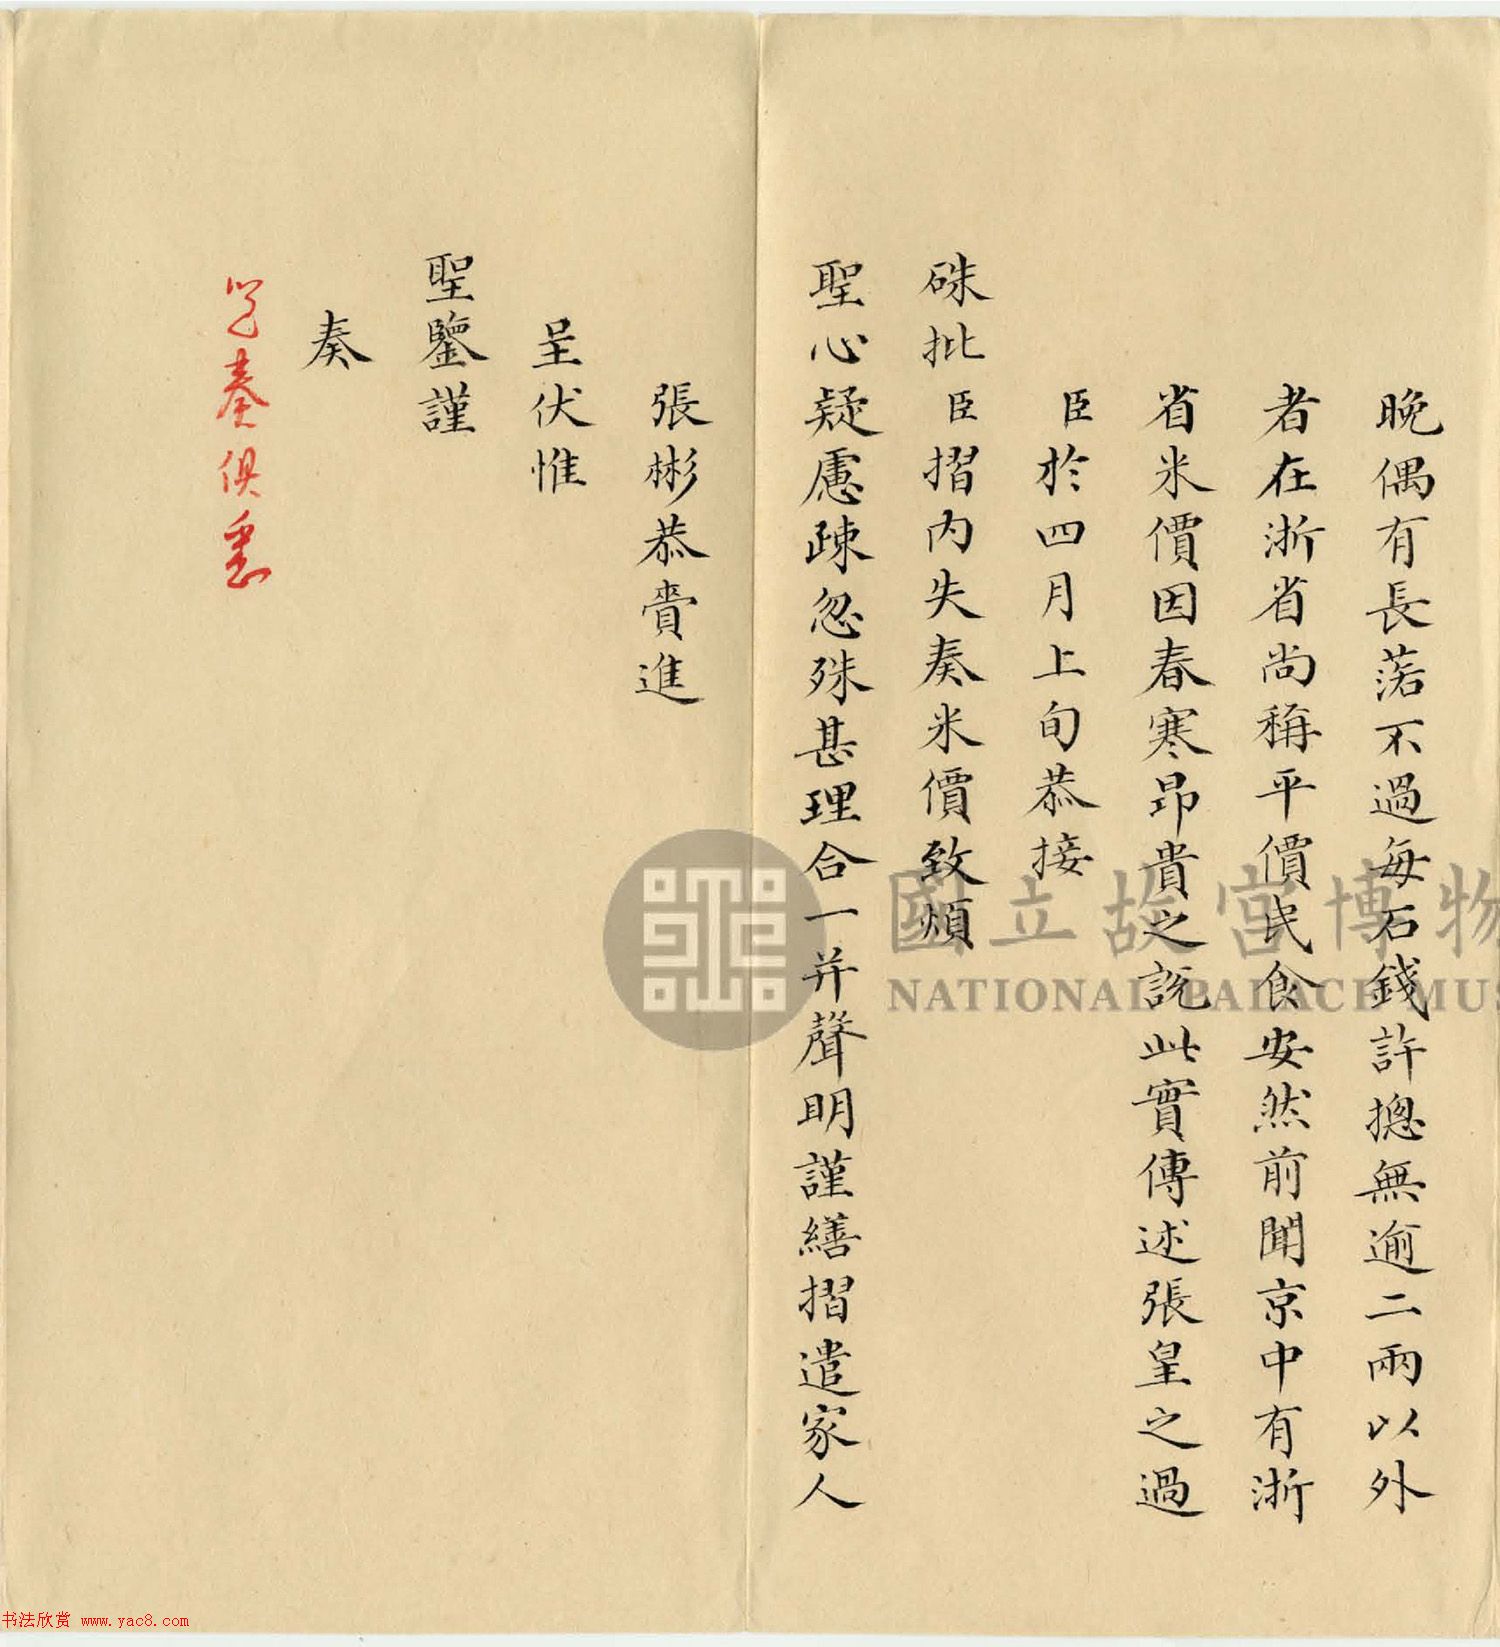 晚偶有長落不過每石錢許摠無逾二兩以外
者在浙省尚稱平價民食安然前聞京中有浙
省米價因春寒昂貴之説此實傳述張皇之過
臣於四月上旬恭接
硃批臣摺内失奏米價致煩
聖心疑慮疎忽殊甚理合一并聲明謹繕摺遣家人
張彬恭賫進
呈伏惟
聖鑒謹
奏
覽奏俱悉
國立故宮博物
NATIONAL PALACE MUS
书法欣赏 www.yac8.com